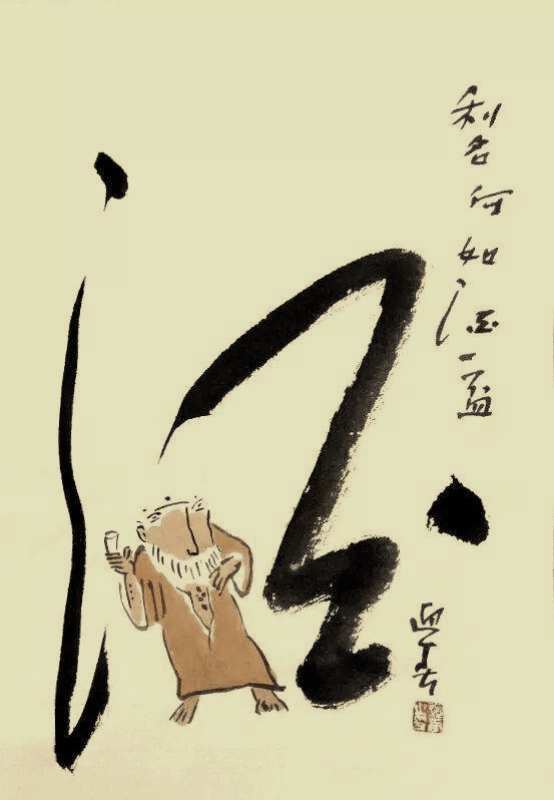 利名何如酒一盃
酒